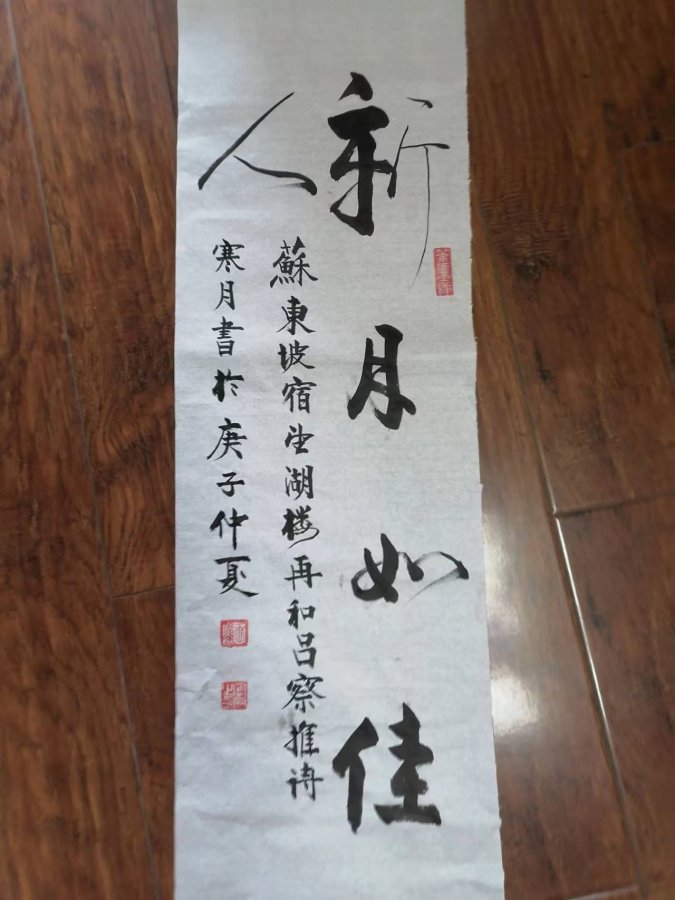 新月如佳
人
蘇東坡宿望湖楼再和吕察推詩
寒月書於庚子仲夏